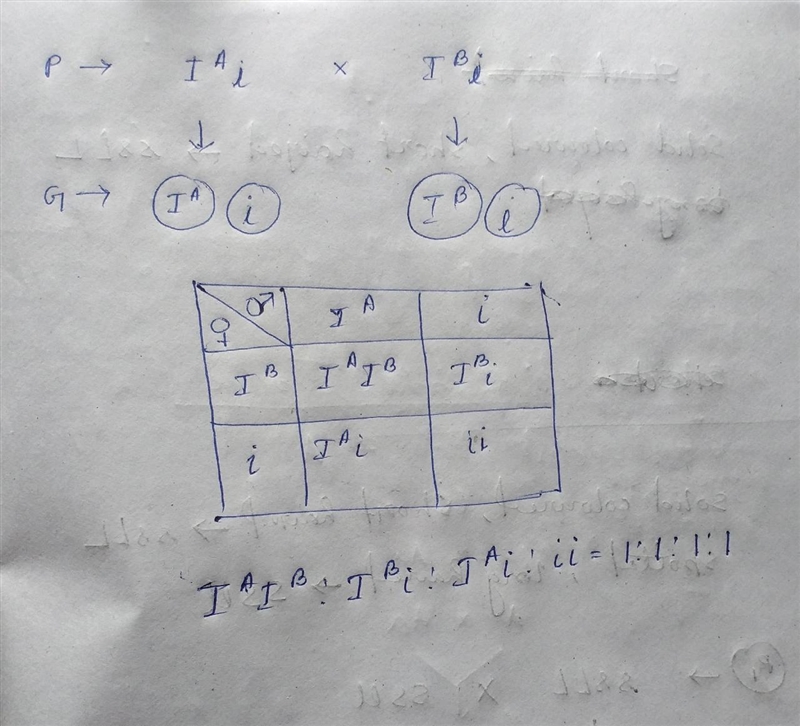 P → I^A i × I^B i
↓ ↓
G → I^A i I^B i
♀ ♂ I^A i
I^B I^A I^B I^B i
i I^A i ii
I^A I^B : I^B i : I^A i : ii = 1:1:1:1